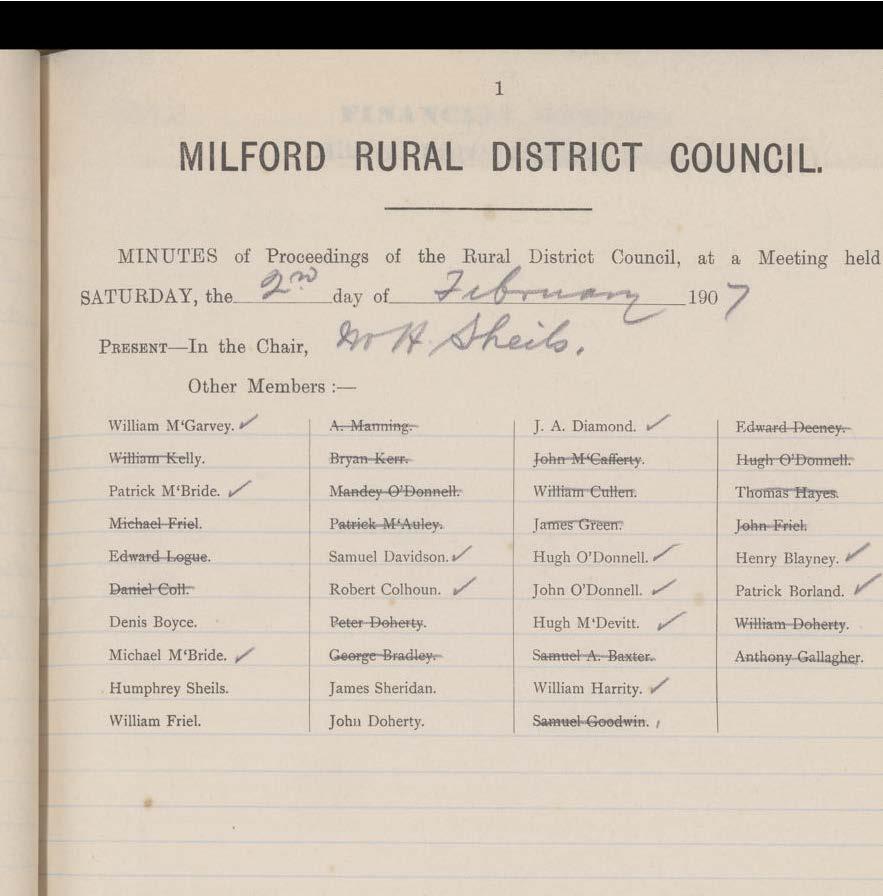 1
MILFORD RURAL DISTRICT COUNCIL.
MINUTES of Proceedings of the Rural District Council, at a Meeting held
SATURDAY, the 2nd day of February 1907
PRESENT—In the Chair, Mr H. Sheils.
Other Members :—
William M‘Garvey.
William Kelly.
Patrick M‘Bride.
Michael Friel.
Edward Logue.
Daniel Coll.
Denis Boyce.
Michael M‘Bride.
Humphrey Sheils.
William Friel.
A. Manning.
Bryan Kerr.
Mandey O’Donnell.
Patrick M‘Auley.
Samuel Davidson.
Robert Colhoun.
Peter Doherty.
George Bradley.
James Sheridan.
John Doherty.
J. A. Diamond.
John M‘Cafferty.
William Cullen.
James Green.
Hugh O’Donnell.
John O’Donnell.
Hugh M‘Devitt.
Samuel A. Baxter.
William Harrity.
Samuel Goodwin.
Edward Deeney.
Hugh O’Donnell.
Thomas Hayes.
John Friel.
Henry Blayney.
Patrick Borland.
William Doherty.
Anthony Gallagher.